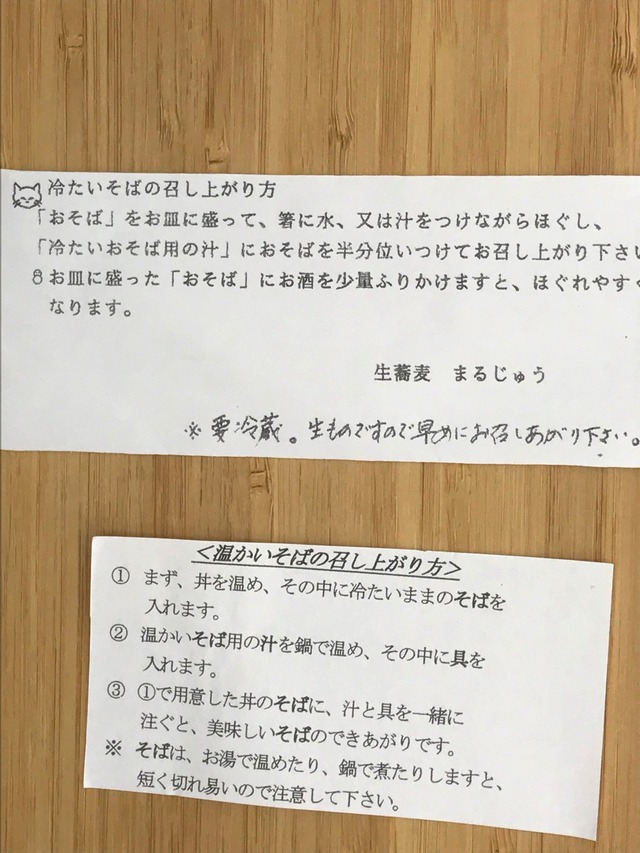 冷たいそばの召し上がり方
「おそば」をお皿に盛って、箸に水、又は汁をつけながらほぐし、
「冷たいおそば用の汁」におそばを半分位いつけてお召し上がり下さい
8お皿に盛った「おそば」にお酒を少量ふりかけますと、ほぐれやすく
なります。
生蕎麦 まるじゅう
※要冷蔵。生ものですので早めにお召しあがり下さい。
<温かいそばの召し上がり方>
① まず、丼を温め、その中に冷たいままのそばを
入れます。
② 温かいそば用の汁を鍋で温め、その中に具を
入れます。
③ ①で用意した丼のそばに、汁と具を一緒に
注ぐと、美味しいそばのできあがりです。
※ そばは、お湯で温めたり、鍋で煮たりしますと、
短く切れ易いので注意して下さい。